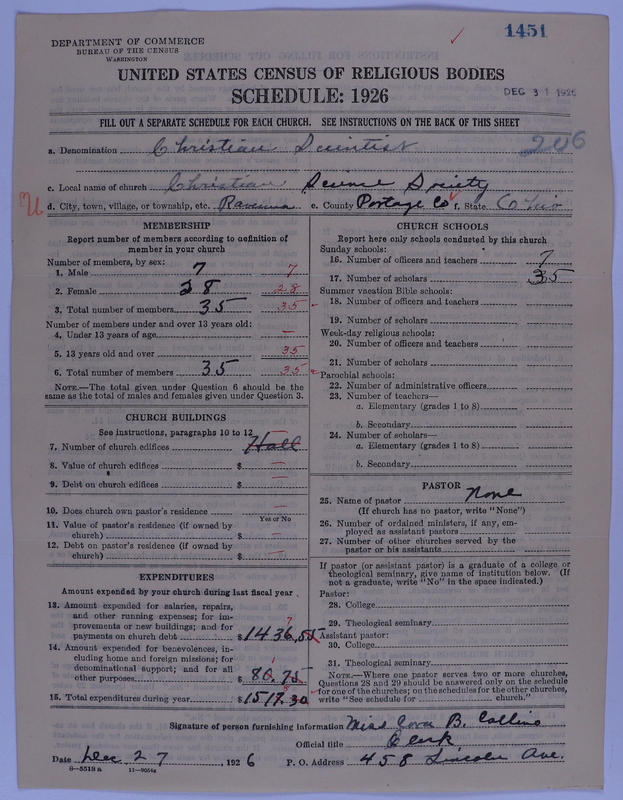 1451
DEPARTMENT OF COMMERCE
BUREAU OF THE CENSUS
WASHINGTON
UNITED STATES CENSUS OF RELIGIOUS BODIES
SCHEDULE: 1926
DEC 31 1926
FILL OUT A SEPARATE SCHEDULE FOR EACH CHURCH. SEE INSTRUCTIONS ON THE BACK OF THIS SHEET
a. Denomination Christian Scientist 206
c. Local name of church Christian Science Society
d. City, town, village, or township, etc. Ravenna e. County Portage Co f. State Ohio
MEMBERSHIP
Report number of members according to definition of
member in your church
Number of members, by sex:
1. Male 7 7
2. Female 28 28
3. Total number of members 35 35
Number of members under and over 13 years old:
4. Under 13 years of age —
5. 13 years old and over 35
6. Total number of members 35 35
NOTE.—The total given under Question 6 should be the
same as the total of males and females given under Question 3.
CHURCH BUILDINGS
See instructions, paragraphs 10 to 12
7. Number of church edifices Hall —
8. Value of church edifices $ —
9. Debt on church edifices $ —
10. Does church own pastor's residence —
Yes or No
11. Value of pastor's residence (if owned by
church) $ —
12. Debt on pastor's residence (if owned by
church) $ —
EXPENDITURES
Amount expended by your church during last fiscal year
13. Amount expended for salaries, repairs,
and other running expenses; for im-
provements or new buildings; and for
payments on church debt $1436.55
14. Amount expended for benevolences, in-
cluding home and foreign missions; for
denominational support; and for all
other purposes $80.75
15. Total expenditures during year $1517.30
CHURCH SCHOOLS
Report here only schools conducted by this church
Sunday schools:
16. Number of officers and teachers 7
17. Number of scholars 35
Summer vacation Bible schools:
18. Number of officers and teachers
19. Number of scholars
Week-day religious schools:
20. Number of officers and teachers
21. Number of scholars
Parochial schools:
22. Number of administrative officers
23. Number of teachers—
a. Elementary (grades 1 to 8)
b. Secondary
24. Number of scholars—
a. Elementary (grades 1 to 8)
b. Secondary
PASTOR
25. Name of pastor None
(If church has no pastor, write "None")
26. Number of ordained ministers, if any, em-
ployed as assistant pastors
27. Number of other churches served by the
pastor or his assistants
If pastor (or assistant pastor) is a graduate of a college or
theological seminary, give name of institution below. (If
not a graduate, write "No" in the space indicated.)
Pastor:
28. College
29. Theological seminary
Assistant pastor:
30. College
31. Theological seminary
NOTE.—Where one pastor serves two or more churches,
Questions 28 and 29 should be answered only on the schedule
for one of the churches; on the schedules for the other churches,
write "See schedule for church."
Signature of person furnishing information Miss Cora B. Collins
Official title Clerk
Date Dec 27 1926 P. O. Address 458 Lincoln Ave.
8—5518 a 11—9064a